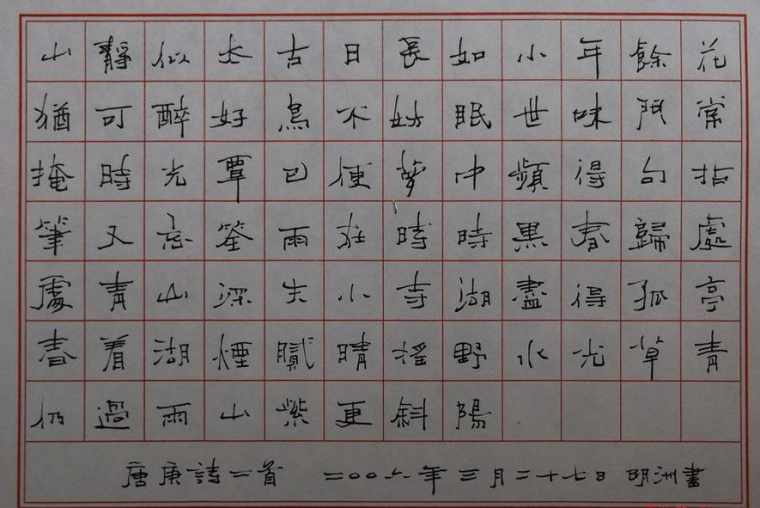 山靜似太古日長如小年餘花
猶可醉好鳥不妨眠世味門常
掩時光簟已便夢中頻得句拈
筆又忘筌雨在時時黑春歸處
處青山深失小寺湖盡得孤亭
春着湖煙膩晴搖野水光草青
仍過雨山紫更斜陽
唐庚詩二首 二00六年三月二十七日 明洲書